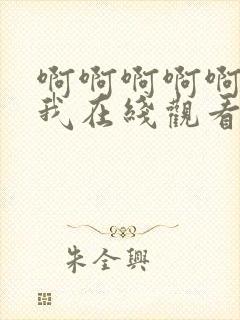 啊啊啊啊啊
我在綫觀看
朱全興